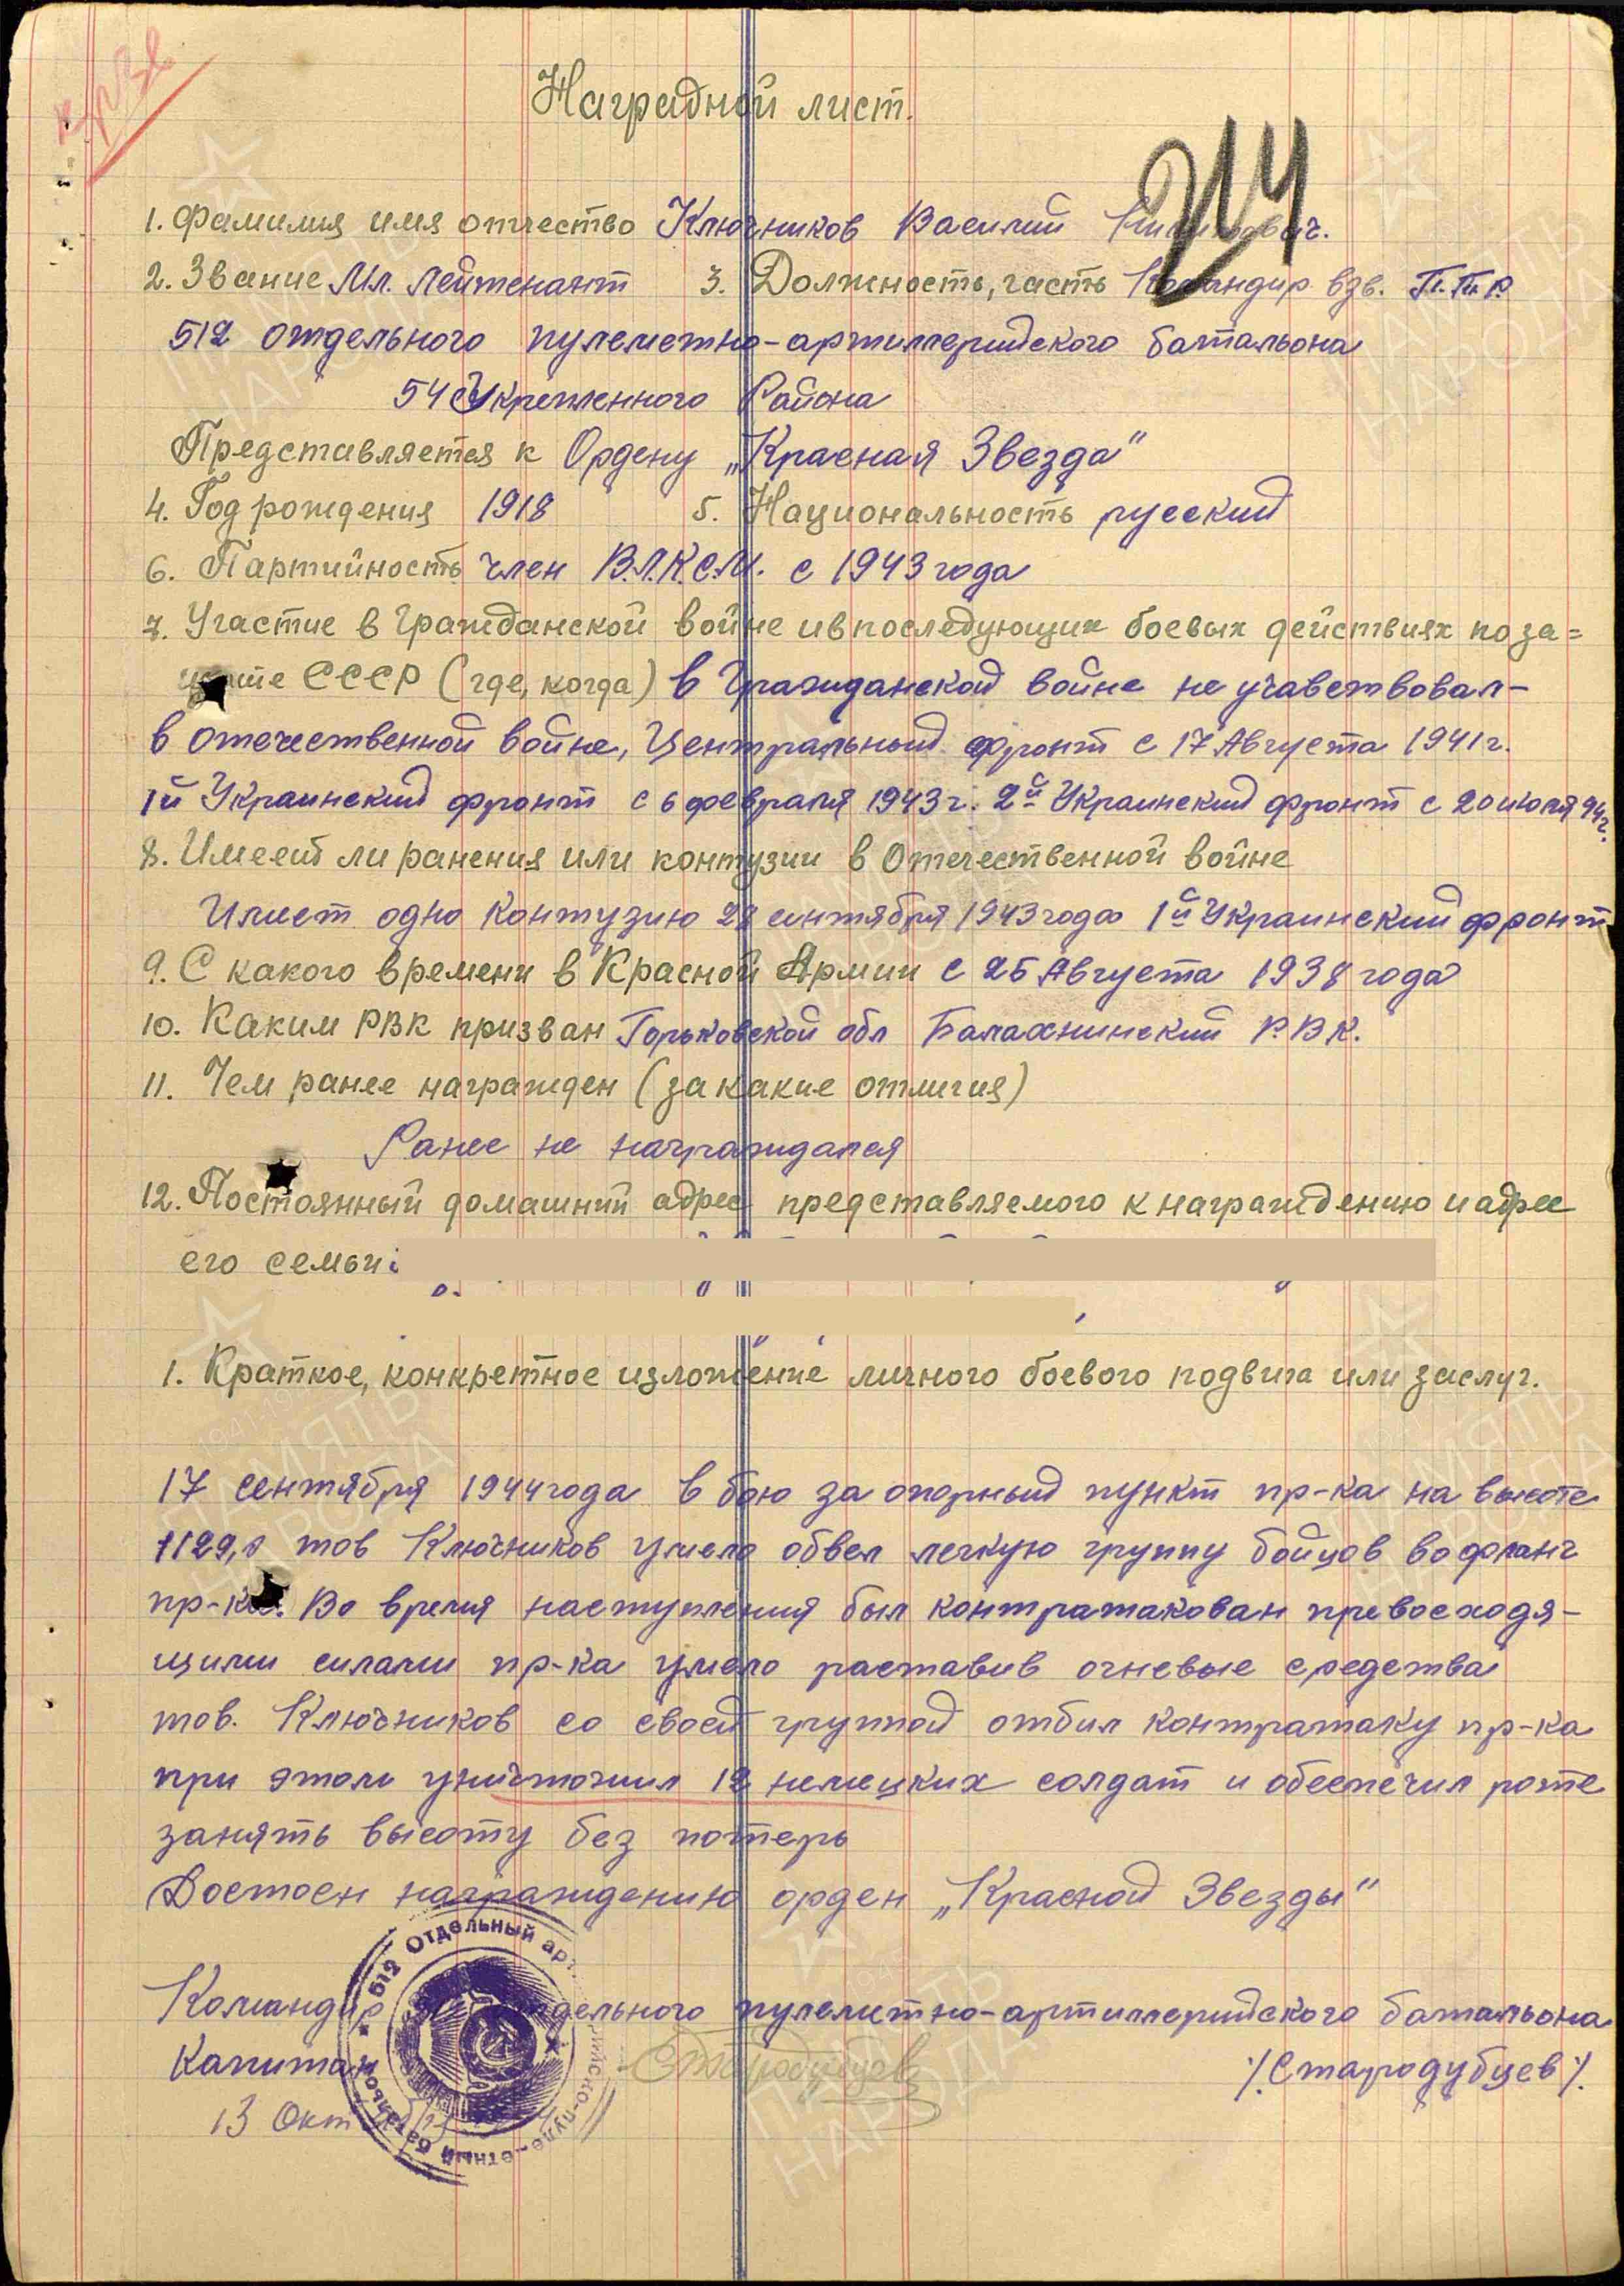 Наградной лист.
1. Фамилия имя отчество Ключников Василий
2. Звание Мл. Лейтенант 3. Должность, часть Командир взв. П.Т.Р.
512 отдельного пулеметно-артиллерийского батальона
54 Укрепленного Района
Представляется к Ордену „Красная Звезда"
4. Год рождения 1918 5. Национальность русский
6. Партийность член В.Л.К.С.М. с 1943 года
7. Участие в Гражданской войне и в последующих боевых действиях по за=
щите СССР (где, когда) в Гражданской войне не учавствовал-
в отечественной войне, Центральный фронт с 17 Августа 1941г.
1й Украинский фронт с 6 февраля 1943г. 2й Украинский фронт с 20 июля 44г.
8. Имеет ли ранения или контузии в Отечественной войне
Имеет одно контузию 28 сентября 1943 года 1й Украинский фронт
9. С какого времени в Красной Армии с 25 Августа 1938 года
10. Каким РВК призван Горьковской обл Балахнинский Р.В.К.
11. Чем ранее награжден (за какие отличия)
Ранее не награждался
12. Постоянный домашний адрес представляемого к награждению и адрес
его семьи:
1. Краткое, конкретное изложение личного боевого подвига или заслуг.
17 сентября 1944 года в бою за опорный пункт пр-ка на высоте
1129,0 тов Ключников умело обвел легкую группу бойцов во фланг
пр-ка. Во время наступления был контратакован превосходя-
щими силами пр-ка умело раставив огневые средства
тов. Ключников со своей группой отбил контратаку пр-ка
при этом уничтожил 12 немецких солдат и обеспечил роте
занять высоту без потерь
Достоен награждению орден „Красной Звезды"
Командир отдельного пулеметно-артиллерийского батальона
Капитан Стародубцев /Стародубцев/.
13 Октября
512 Отдельный артиллерийско-пулеметный батальон
ПАМЯТЬ НАРОДА